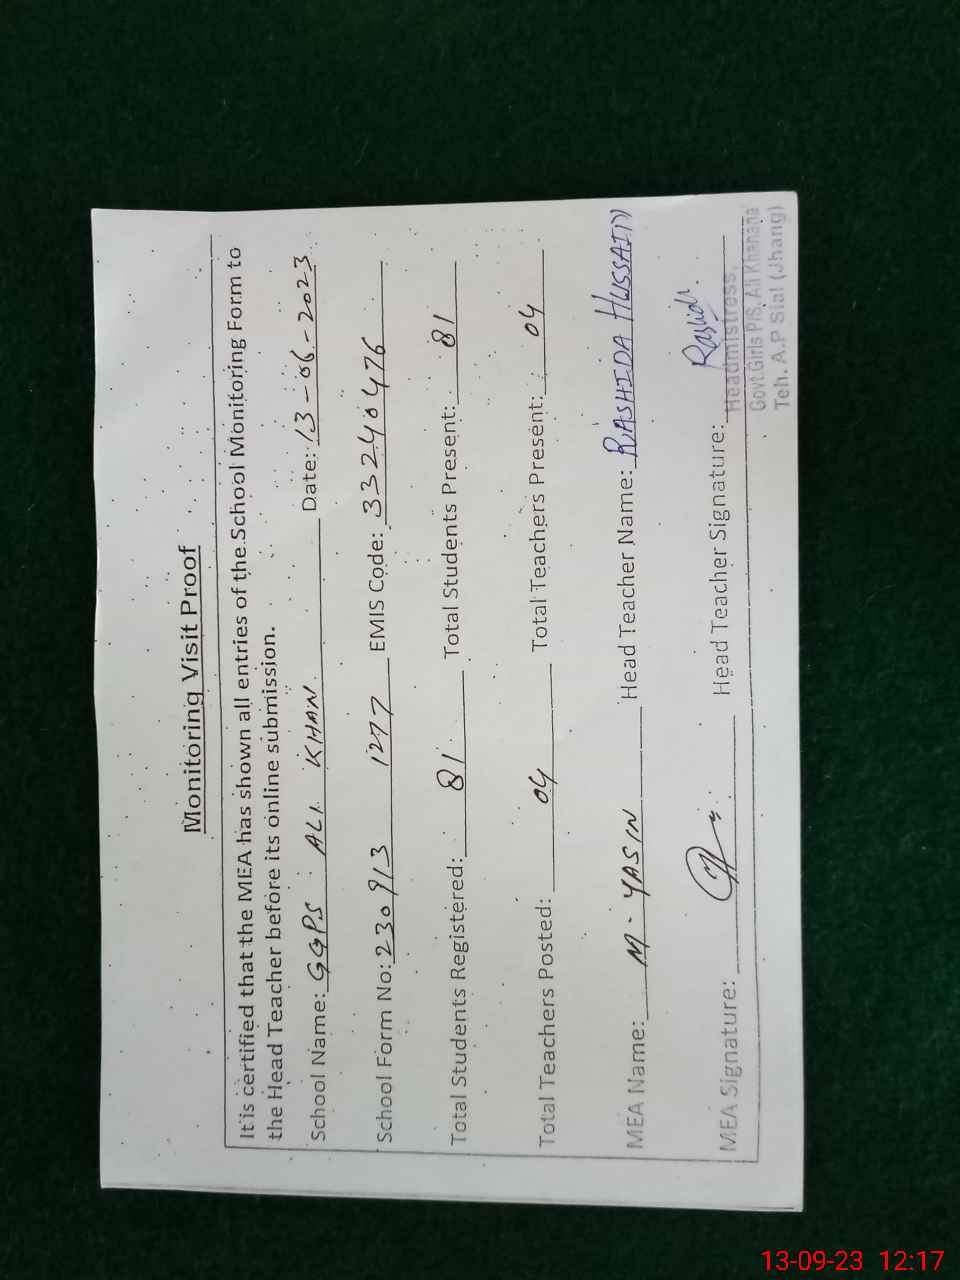 Monitoring Visit Proof
It is certified that the MEA has shown all entries of the School Monitoring Form to
the Head Teacher before its online submission.
School Name: GGPS ALI KHAN Date: 13-06-2023
School Form No: 230913 1277 EMIS Code: 33240476
Total Students Registered: 81 Total Students Present: 81
Total Teachers Posted: 04 Total Teachers Present: 04
MEA Name: M. YASIN Head Teacher Name: RASHIDA HUSSAIN
MEA Signature: Head Teacher Signature: Rashida
Headmistress,
Govt.Girls P/S. Ali Khanana
Teh. A.P Sial (Jhang)
13-09-23 12:17